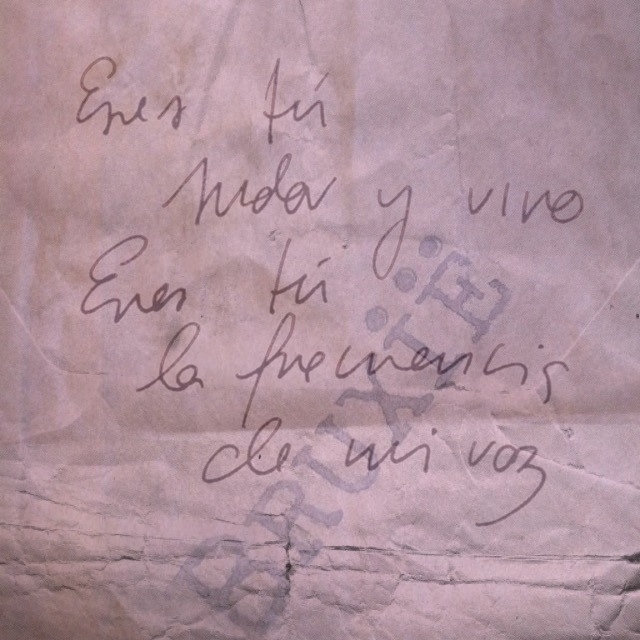 Eres tú
nuda y vivo
Eres tú
la frecuencia
de mi voz